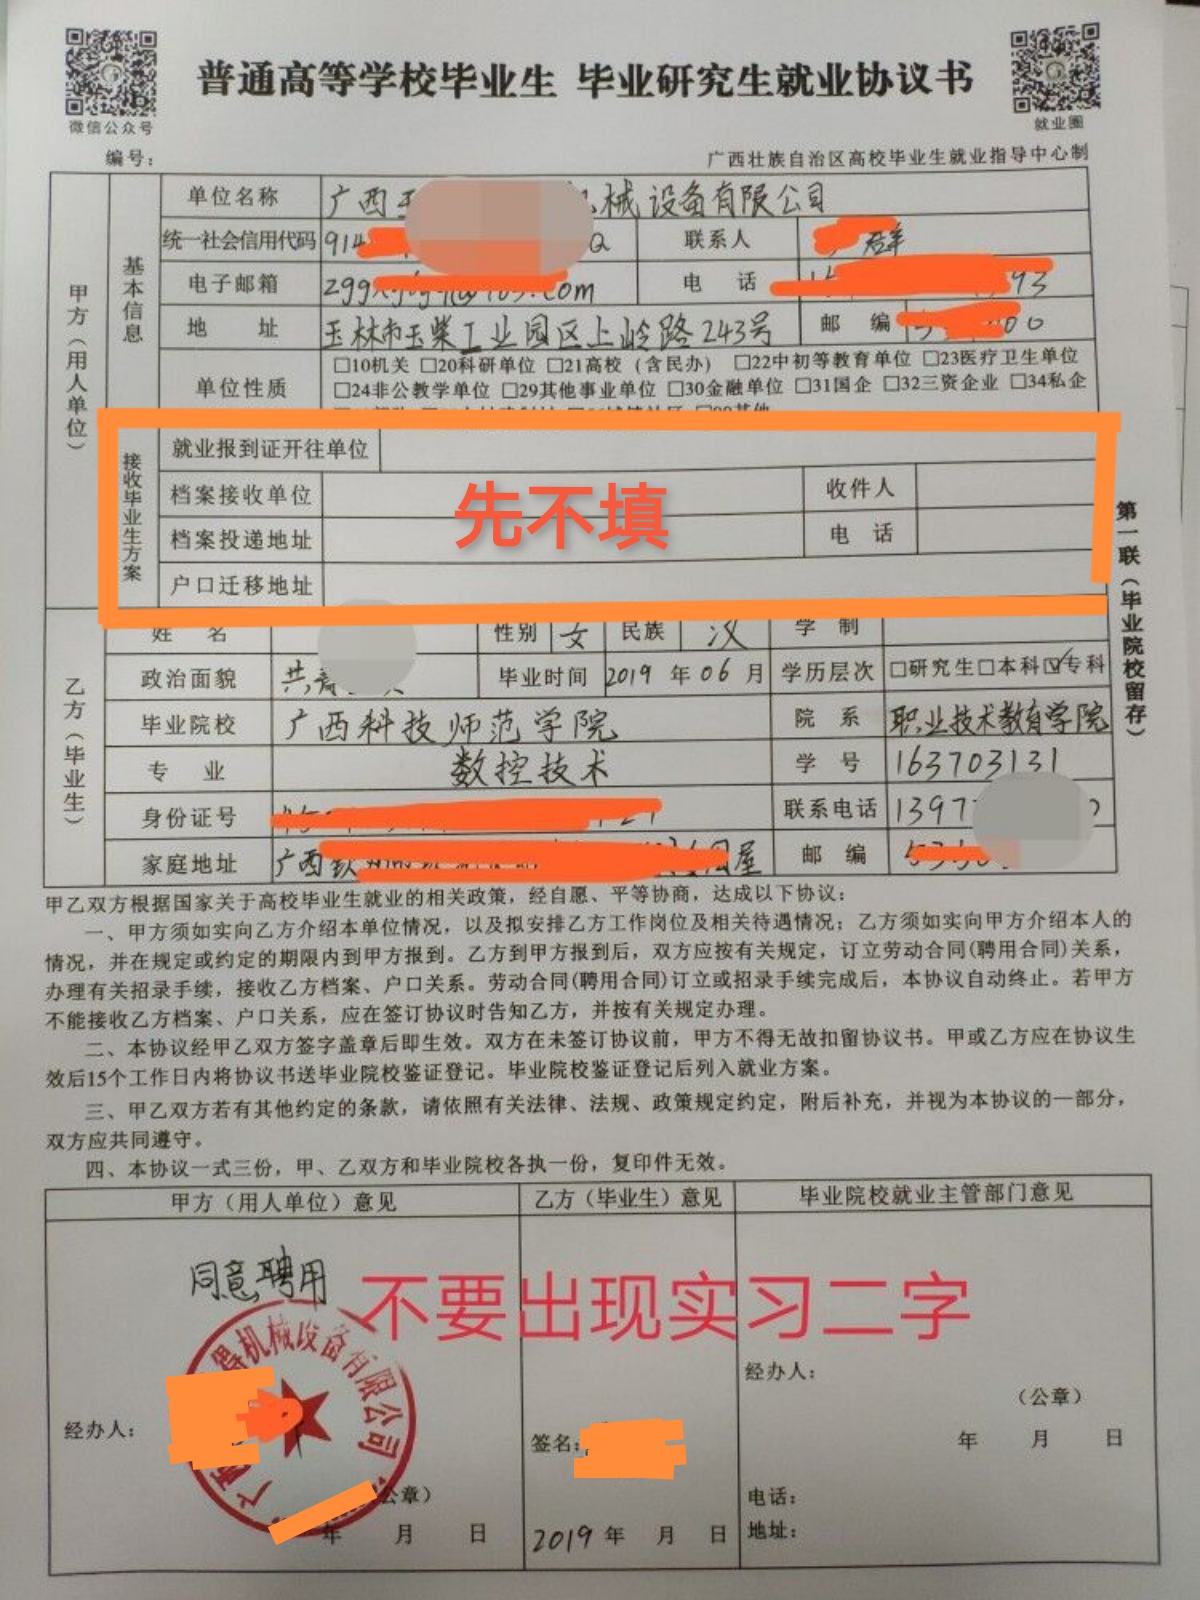 普通高等学校毕业生 毕业研究生就业协议书
微信公众号
就业圈
编号：
广西壮族自治区高校毕业生就业指导中心制
甲方（用人单位）
基本信息
单位名称 广西 机械设备有限公司
统一社会信用代码 914 Q 联系人 群
电子邮箱 .com 电 话 93
地 址 玉林市玉柴工业园区上岭路243号 邮 编
单位性质 □10机关 □20科研单位 □21高校（含民办） □22中初等教育单位 □23医疗卫生单位
□24非公教学单位 □29其他事业单位 □30金融单位 □31国企 □32三资企业 □34私企
接收毕业生方案
就业报到证开往单位
档案接收单位 先不填 收件人
档案投递地址 电 话
户口迁移地址
第一联（毕业院校留存）
乙方（毕业生）
姓 名 性别 女 民族 汉 学 制
政治面貌 共青 毕业时间 2019 年 06 月 学历层次 □研究生□本科☑专科
毕业院校 广西科技师范学院 院 系 职业技术教育学院
专 业 数控技术 学 号 163703131
身份证号 联系电话 1397
家庭地址 广西钦 屋 邮 编
甲乙双方根据国家关于高校毕业生就业的相关政策，经自愿、平等协商，达成以下协议：
一、甲方须如实向乙方介绍本单位情况，以及拟安排乙方工作岗位及相关待遇情况；乙方须如实向甲方介绍本人的
情况，并在规定或约定的期限内到甲方报到。乙方到甲方报到后，双方应按有关规定，订立劳动合同(聘用合同)关系，
办理有关招录手续，接收乙方档案、户口关系。劳动合同(聘用合同)订立或招录手续完成后，本协议自动终止。若甲方
不能接收乙方档案、户口关系，应在签订协议时告知乙方，并按有关规定办理。
二、本协议经甲乙双方签字盖章后即生效。双方在未签订协议前，甲方不得无故扣留协议书。甲或乙方应在协议生
效后15个工作日内将协议书送毕业院校鉴证登记。毕业院校鉴证登记后列入就业方案。
三、甲乙双方若有其他约定的条款，请依照有关法律、法规、政策规定约定，附后补充，并视为本协议的一部分，
双方应共同遵守。
四、本协议一式三份，甲、乙双方和毕业院校各执一份，复印件无效。
甲方（用人单位）意见 乙方（毕业生）意见 毕业院校就业主管部门意见
同意聘用
不要出现实习二字
机械设备有限公司
经办人：
（公章）
经办人：
签名：
年 月 日
公章）
电话：
年 月 日 2019 年 月 日 地址：